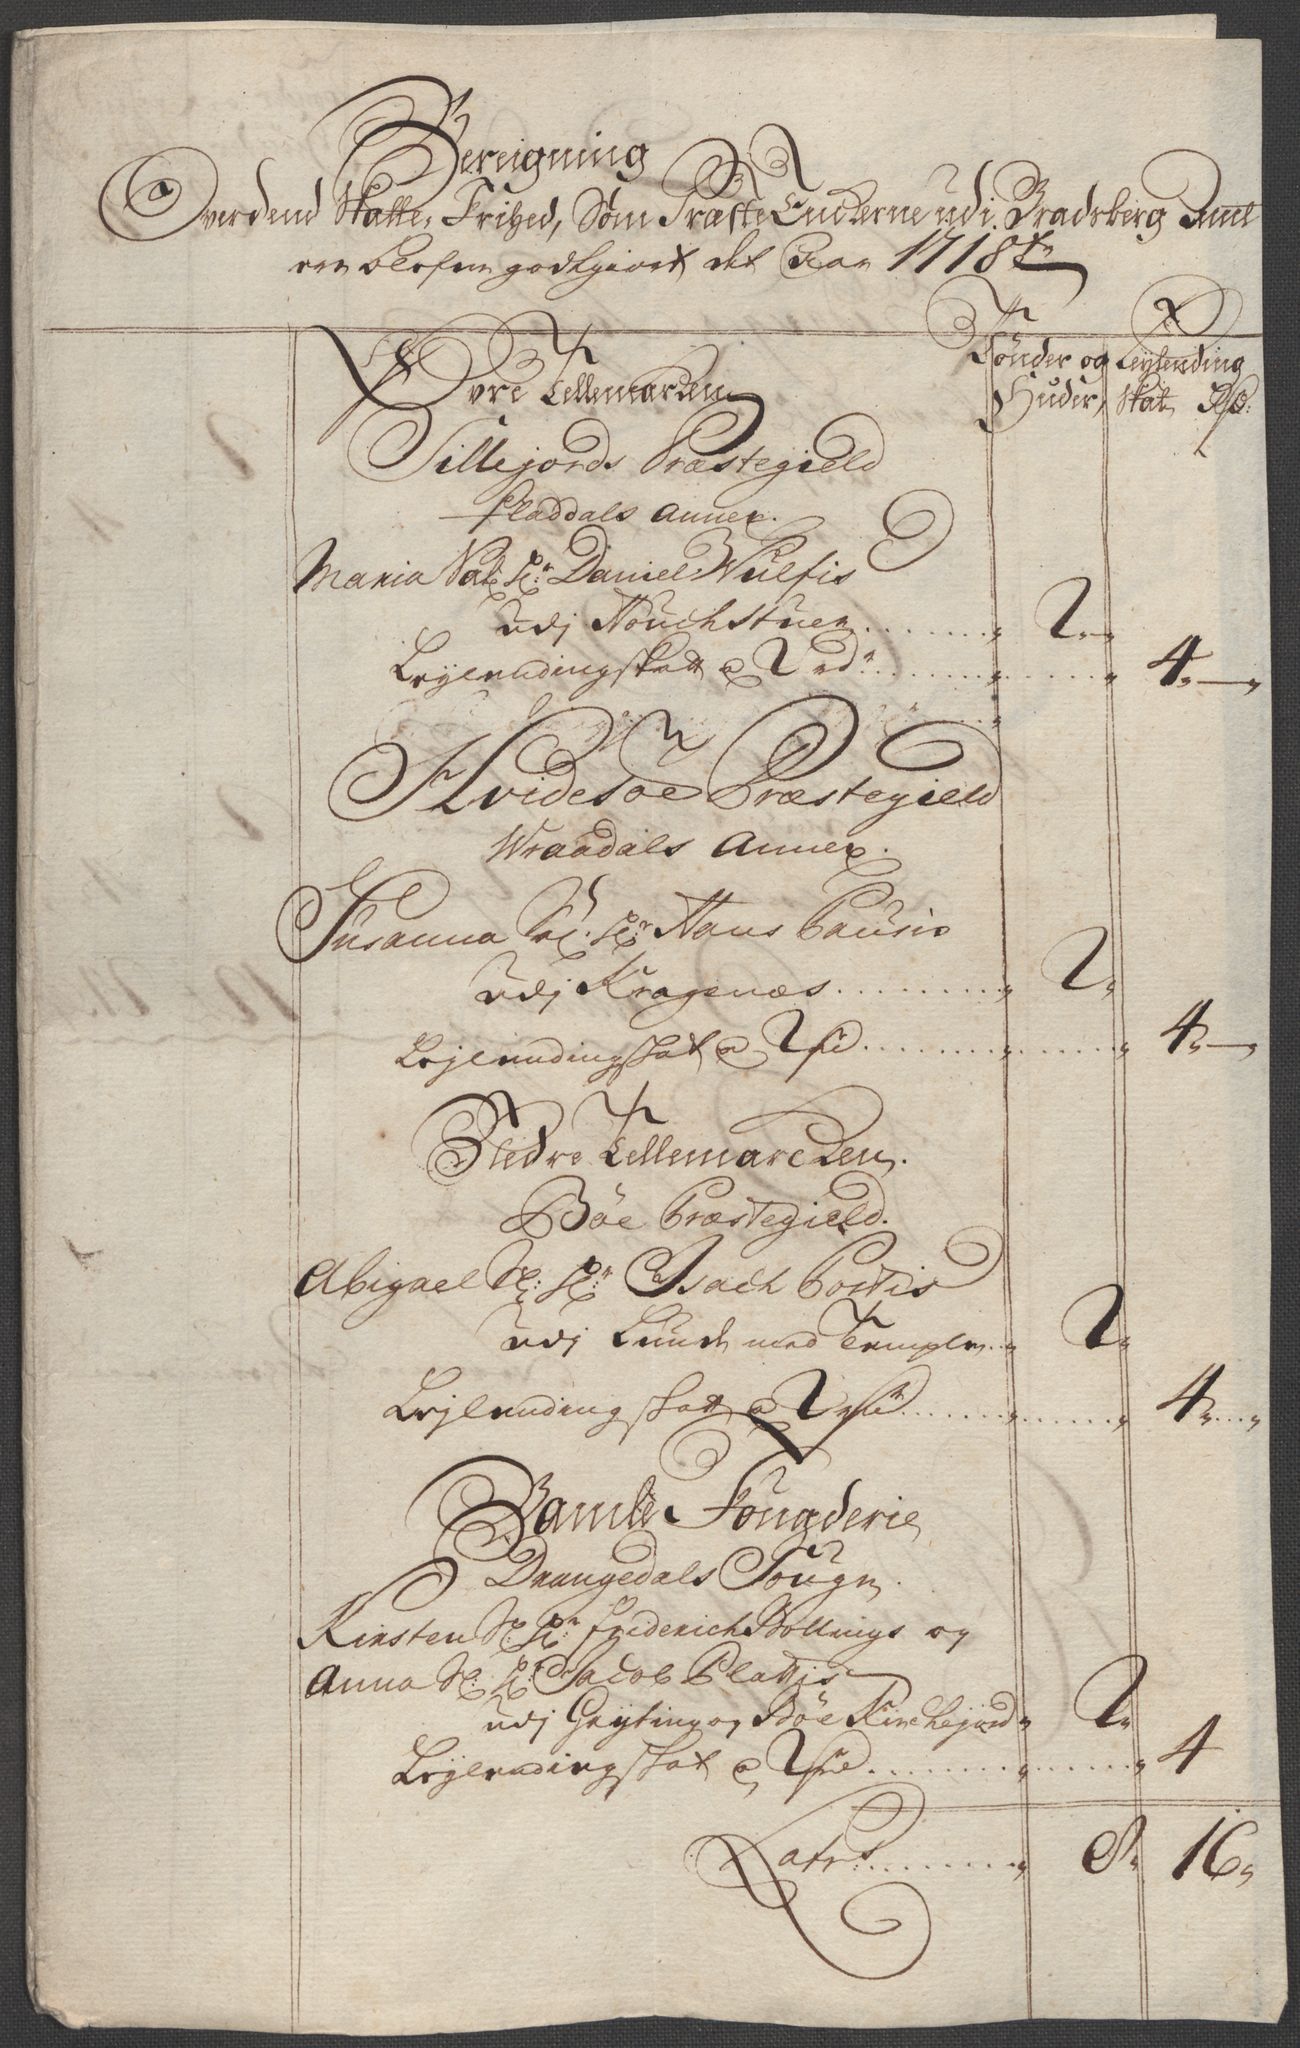 Bereigning
Over dend Skatte, Frihed, Som Præste Enckerne udi Bradsberg Ambt
er blefven godtgiort det Aar 1718
Tønder og Leylending
Huder, Skat Rd:
Øvre Tellemarcken
Sillejords Præstegield
Fladdals Annex.
Maria Sal: Hr: Daniel Wulfis
udj Nouchstuen ........ 2
Leylendingskatt a 2 rd ........ 4
Hvidesøe Præstegield
Wraadals Annex.
Susanna Sl: Hr: Hans Pausis
udj Kragenæs ........ 2
Leylendingskat a 2 ........ 4
Nedre Tellemarcken.
Bøe Præstegield.
Abigael Sl: Hr: Isach Postis
udj Lunde med Temple ... 2
Leylendingskatt a 2 ........ 4
Bamble Fougderie
Drangedals Sougn.
Kirsten Sl: Hr: Friderich Bollings og
Anna Sl: Hr: Jacob Plattis
udj Gryting og Bøe Kirchejord 2
Leylendingskat a 2 ........ 4
Latus ........ 8 16